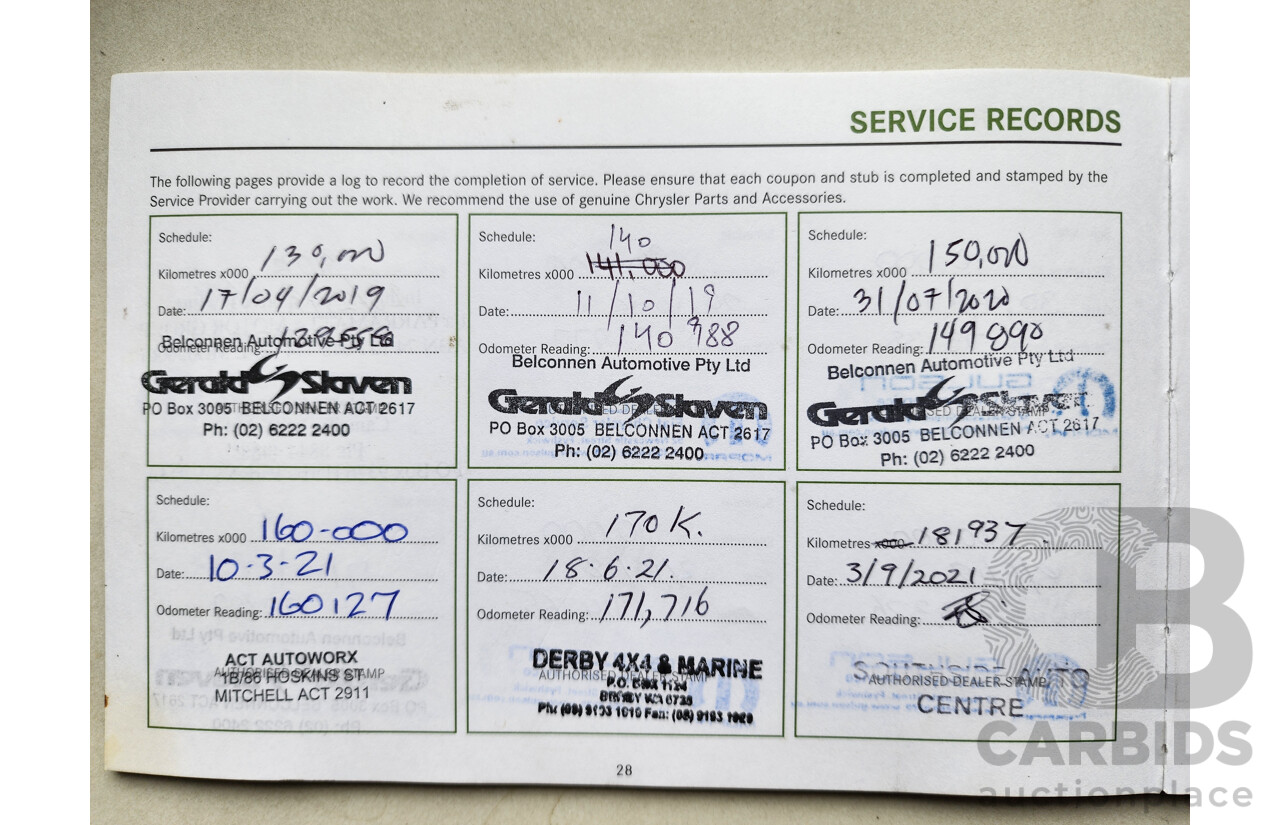 SERVICE RECORDS
The following pages provide a log to record the completion of service. Please ensure that each coupon and stub is completed and stamped by the
Service Provider carrying out the work. We recommend the use of genuine Chrysler Parts and Accessories.
Schedule:
Kilometres x000 130,000
Date: 17/04/2019
Odometer Reading:
Belconnen Automotive Pty Ltd
Gerald Slaven
PO Box 3005 BELCONNEN ACT 2617
Ph: (02) 6222 2400
Schedule: 140
Kilometres x000 141,000
Date: 11/10/19
Odometer Reading: 140 988
Belconnen Automotive Pty Ltd
Gerald Slaven
PO Box 3005 BELCONNEN ACT 2617
Ph: (02) 6222 2400
Schedule:
Kilometres x000 150,000
Date: 31/07/2020
Odometer Reading: 149 890
Belconnen Automotive Pty Ltd
Gerald Slaven
PO Box 3005 BELCONNEN ACT 2617
Ph: (02) 6222 2400
Schedule:
Kilometres x000 160-000
Date: 10-3-21
Odometer Reading: 160127
ACT AUTOWORX
AUTHORISED DEALER STAMP
1B/86 HOSKINS ST
MITCHELL ACT 2911
Schedule:
Kilometres x000 170K.
Date: 18.6.21.
Odometer Reading: 171,716
DERBY 4X4 & MARINE
AUTHORISED DEALER STAMP
P.O. BOX 1124
Schedule:
Kilometres x000 181937
Date: 3/9/2021
Odometer Reading:
SOUTHSIDE AUTO
AUTHORISED DEALER STAMP
CENTRE
28
CARBIDS
auctionplace